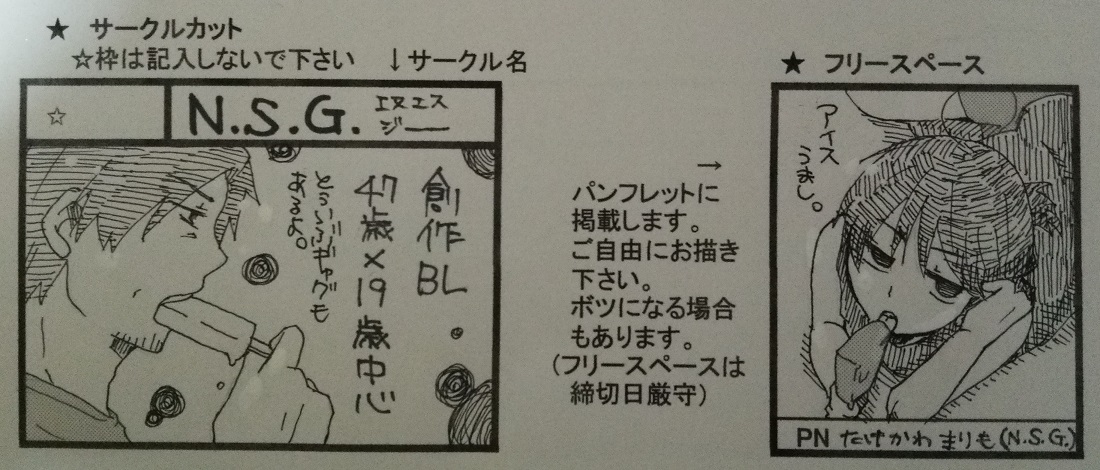 ★ サークルカット
☆枠は記入しないで下さい ↓サークル名
☆
N.S.G. エヌエス
ジー
創作BL
47歳×19歳中心
とういぶギャグも
あるよ。
→
パンフレットに
掲載します。
ご自由にお描き
下さい。
ボツになる場合
もあります。
(フリースペースは
締切日厳守)
★ フリースペース
アイス
うまし。
PN たけかわまりも(N.S.G.)